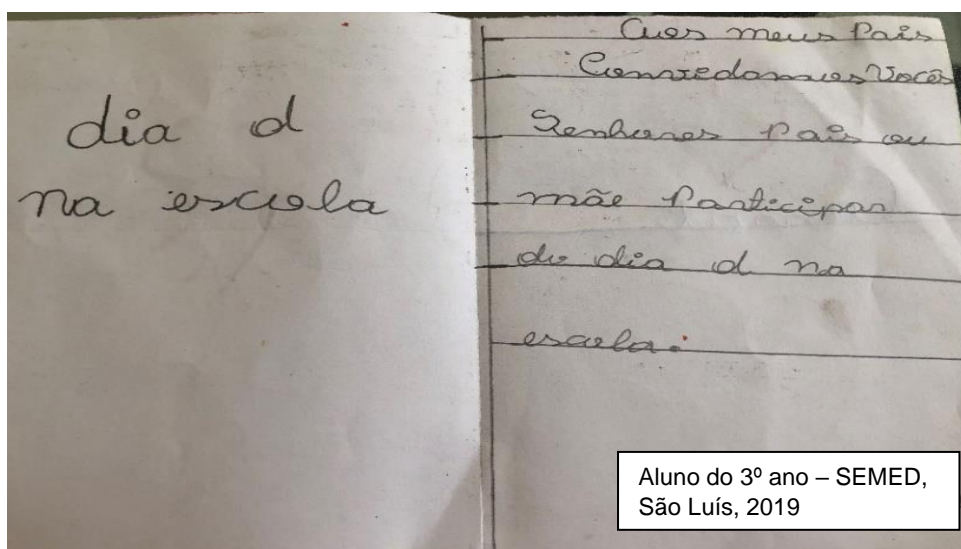 dia d
na escola
Aos meus Pais
Convedamos Vocês
Senhores Pais ou
mãe Participar
do dia d na
escola.
Aluno do 3º ano – SEMED,
São Luís, 2019